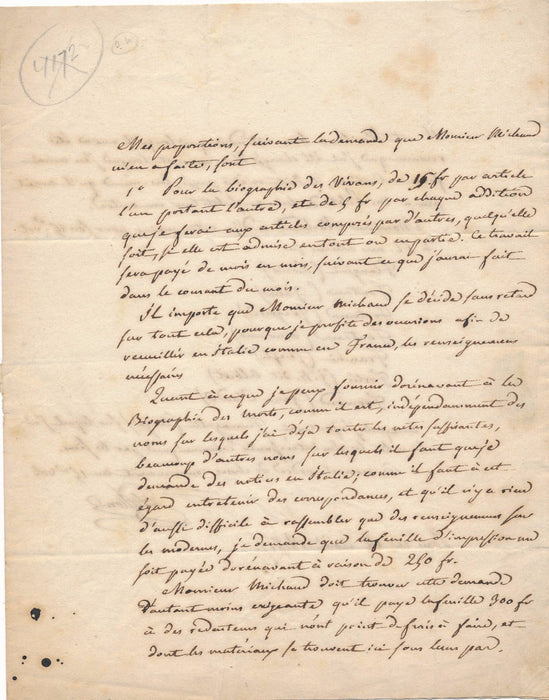 4172
Mes propositions, suivant la demande que Monsieur Michaud
m'en a faite, sont
1° Pour la biographie des Vivans, de 15 fr par article
l'un portant l'autre, et de 5 fr par chaque addition
que je ferai aux articles composés par d'autres, quelqu'elle
soit, si elle est admise en tout ou en partie. Ce travail
sera payé de mois en mois, suivant ce que j'aurai fait
dans le courant du mois.
Il importe que Monsieur Michaud se décide sans retard
sur tout cela, pourque je profite des occasions afin de
recueillir en Italie comme en France, les renseignemens
nécessaires
Quant à ce que je peux fournir dorénavant à la
Biographie des Morts, comme il est, indépendamment des
noms sur lesquels j'ai déja toutes les notes suffisantes,
beaucoup d'autres noms sur lesquels il faut que je
demande des notices en Italie; comme il faut à cet
égard entretenir des correspondances, et qu'il n'y a rien
d'aussi difficile à rassembler que des renseignemens sur
les modernes, je demande que la feuille d'impression me
soit payée dorenavant à raison de 250 fr.
Monsieur Michaud doit trouver cette demande
d'autant moins exigeante qu'il paye la feuille 300 fr
à des redacteurs qui n'ont point de frais à faire, et
dont les matériaux se trouvent ici sous leur